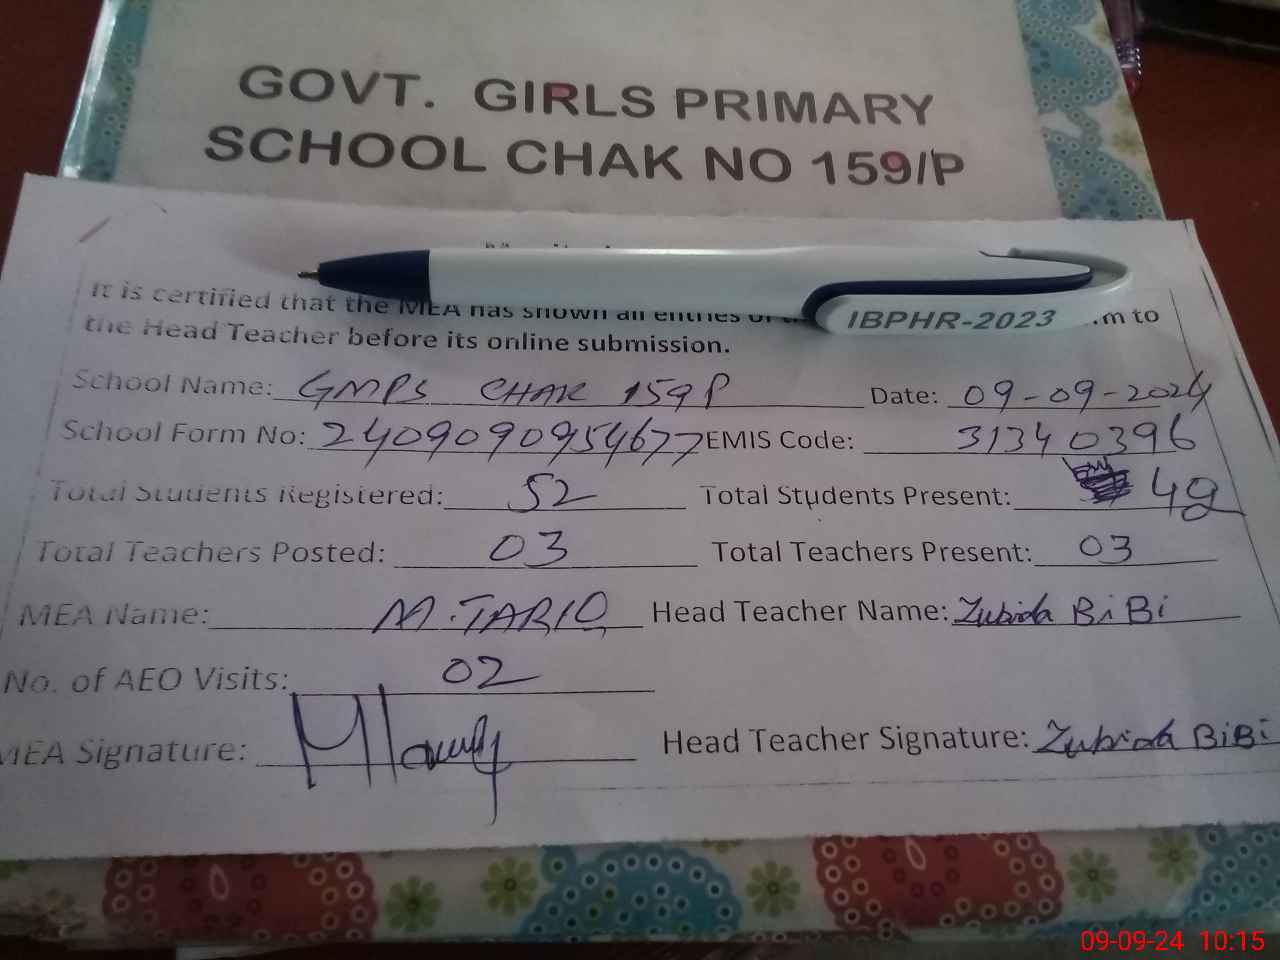 GOVT. GIRLS PRIMARY
SCHOOL CHAK NO 159/P
It is certified that the MEA has shown all entries of
IBPHR-2023
to
the Head Teacher before its online submission.
School Name: GMPS CHAK 159P Date: 09-09-2024
School Form No: 2409090954677 EMIS Code: 31340396
Total Students Registered: 52 Total Students Present: 49
Total Teachers Posted: 03 Total Teachers Present: 03
MEA Name: M.TARIQ Head Teacher Name: Zubida BiBi
No. of AEO Visits: 02
MEA Signature: Head Teacher Signature: Zubida BiBi
09-09-24 10:15